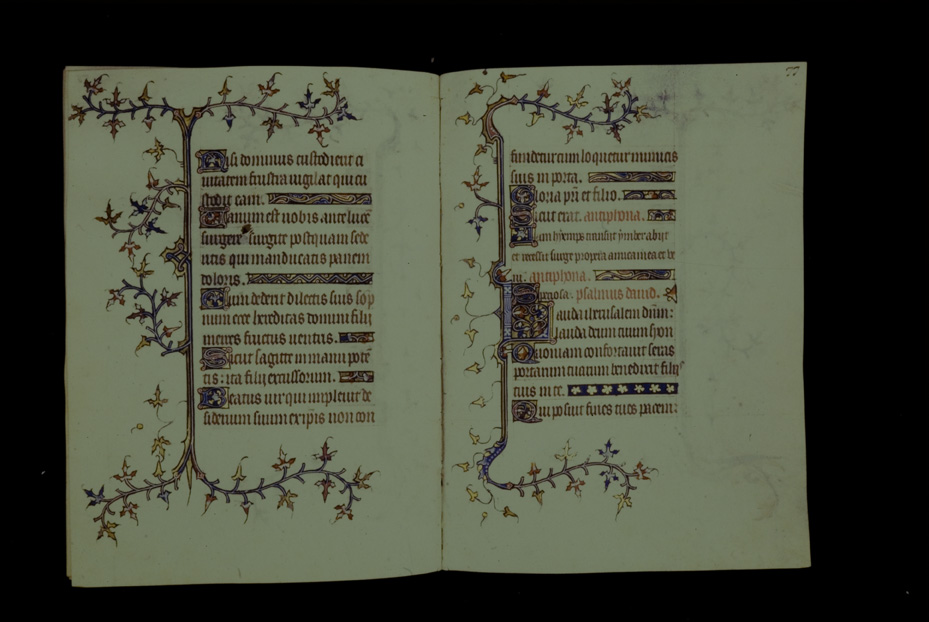 Nisi dominus custodierit ci
uitatem frustra uigilat qui cu
stodit eam.
Uanum est uobis ante lucē
surgere surgite postquam sede
ritis qui manducatis panem
doloris.
Cum dederit dilectis suis sop
num ecce hereditas domini filii
merces fructus uentris.
Sicut sagitte in manu potē
tis: ita filii excussorum.
Beatus uir qui impleuit de
siderium suum ex ipsis non con
fundetur cum loquetur inimicis
suis in porta.
Gloria pr̄i et filio.
Sicut erat. antiphona.
Iam hyemps transiit ymber abiit
et recessit surge propera amica mea et ve
ni. antiphona.
Speciosa. psalmus dauid.
Lauda iherusalem dūm:
lauda deum tuum syon
Quoniam confortauit seras
portarum tuarum benedixit filiis
tuis in te.
Qui posuit fines tuos pacem: